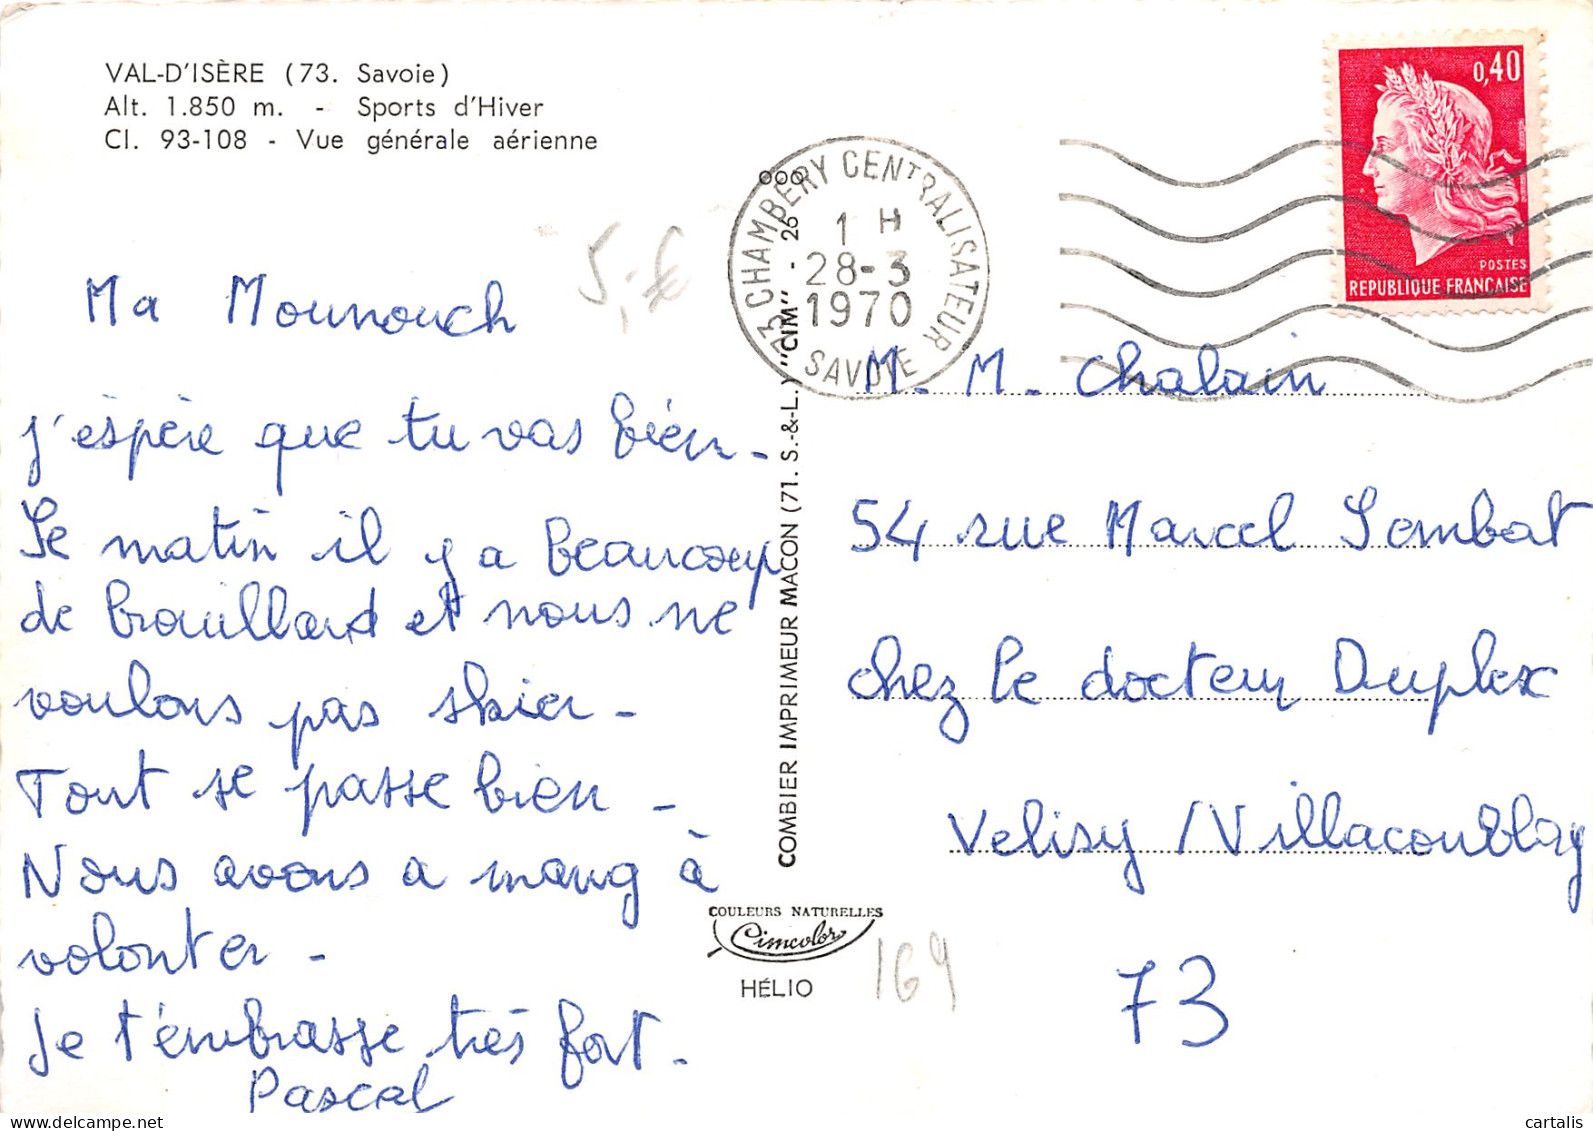 VAL-D'ISÈRE (73. Savoie)
Alt. 1.850 m. - Sports d'Hiver
Cl. 93-108 - Vue générale aérienne
Ma Mounouch
j'éspère que tu vas bien -
Se matin il y a beaucoup
de brouillard et nous ne
voulons pas skier -
Tout se passe bien -
Nous avons a mang à
volonter -
Je t'émbrasse très fort -
Pascal
COMBIER IMPRIMEUR MACON (71. S.-&-L.) "CIM" - 26
COULEURS NATURELLES
Cimcolor
HÉLIO
169
5,-€
73 CHAMBERY CENTRALISATEUR
1 H
28-3
1970
SAVOIE
0,40
POSTES
REPUBLIQUE FRANÇAISE
M. M. Chalain
54 rue Marcel Sembat
chez le docteur Duplex
Velisy / Villacoublay
73
cartalis
www.delcampe.net